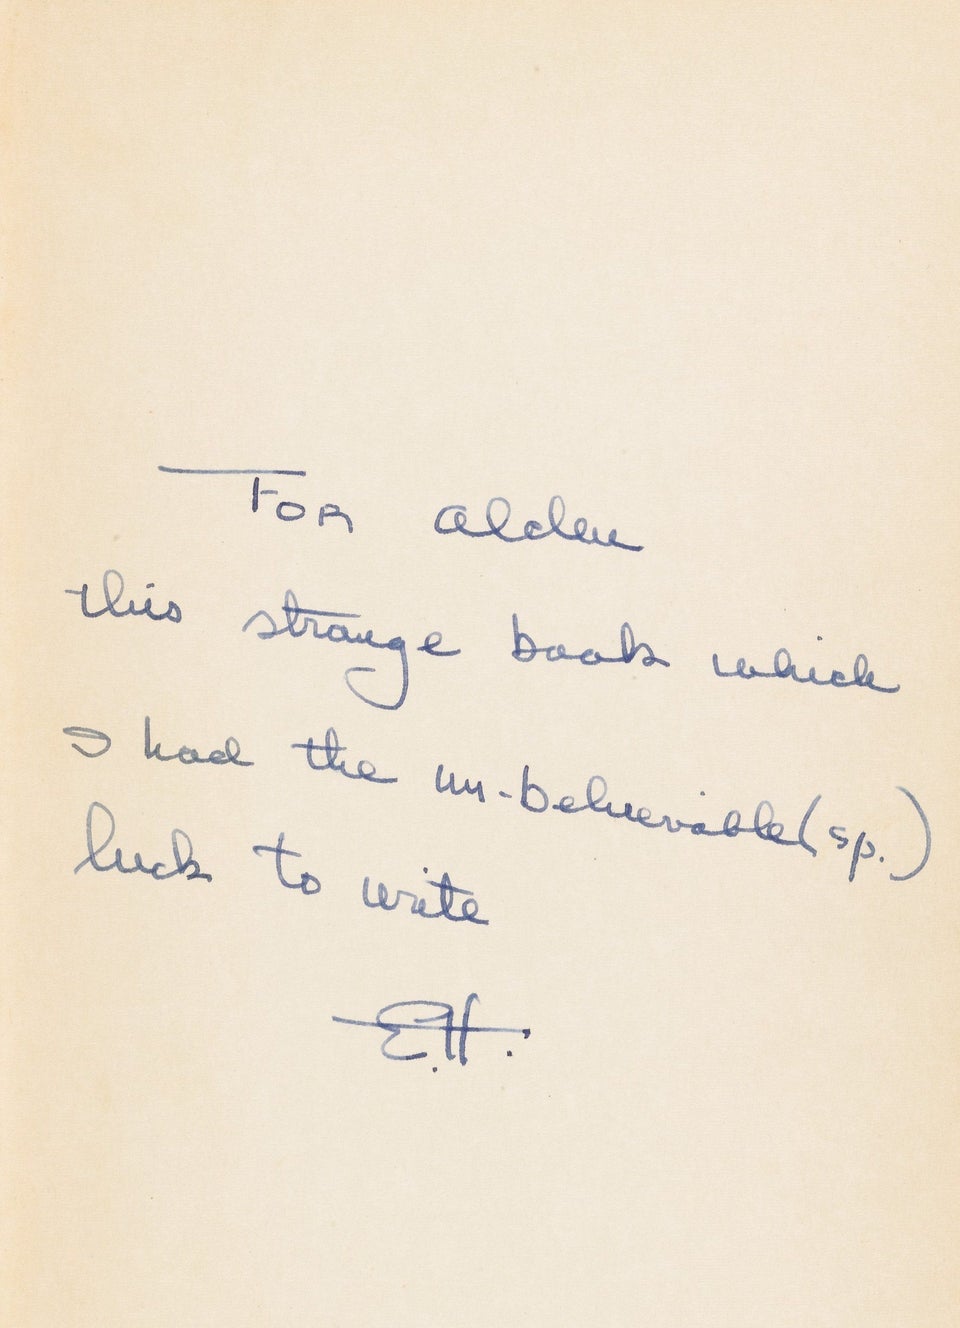 For Alden
this strange book which
I had the un-believable (sp.)
luck to write
E.H.